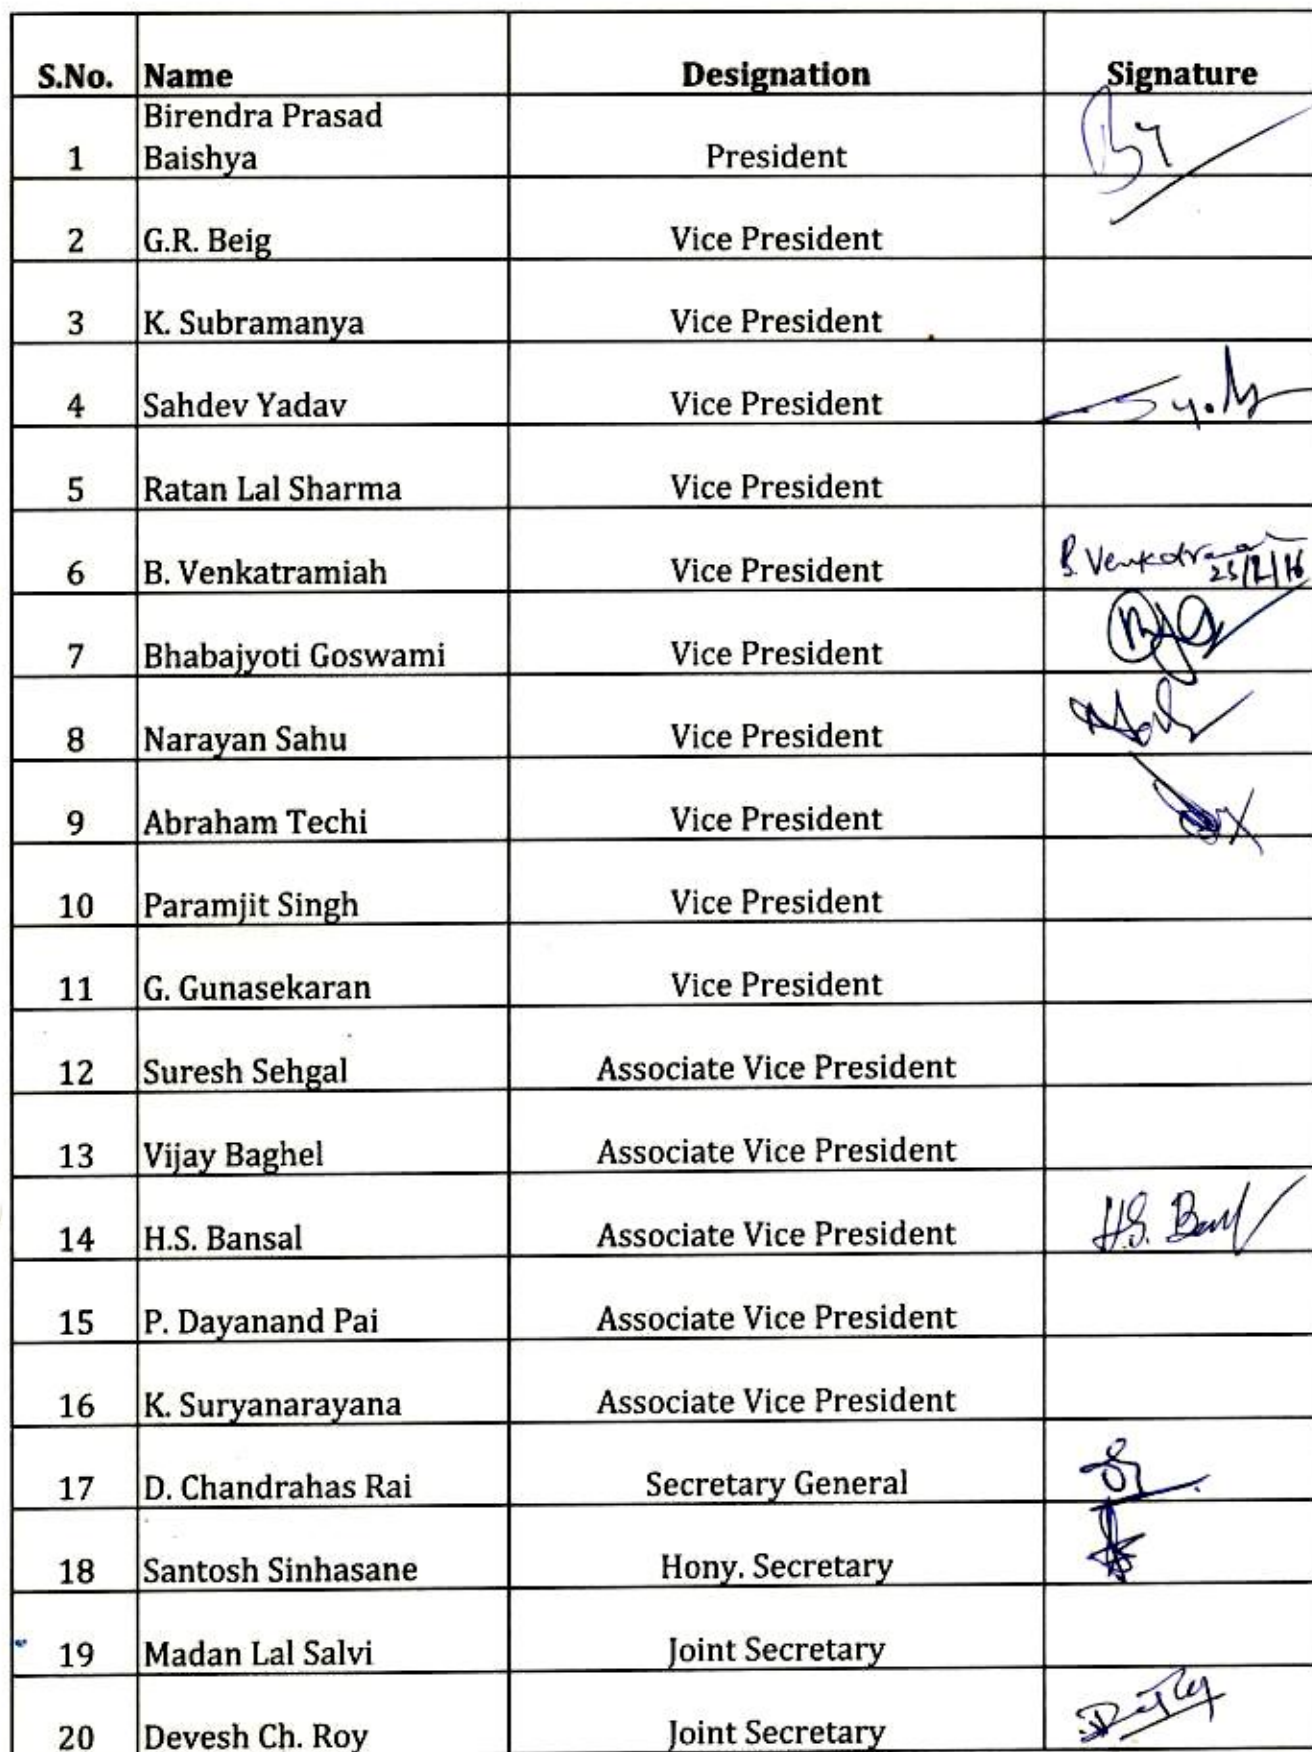 S.No. Name Designation Signature
Birendra Prasad
1 Baishya President
2 G.R. Beig Vice President
3 K. Subramanya Vice President
4 Sahdev Yadav Vice President
5 Ratan Lal Sharma Vice President
6 B. Venkatramiah Vice President
7 Bhabajyoti Goswami Vice President
8 Narayan Sahu Vice President
9 Abraham Techi Vice President
10 Paramjit Singh Vice President
11 G. Gunasekaran Vice President
12 Suresh Sehgal Associate Vice President
13 Vijay Baghel Associate Vice President
14 H.S. Bansal Associate Vice President H.S.
15 P. Dayanand Pai Associate Vice President
16 K. Suryanarayana Associate Vice President
17 D. Chandrahas Rai Secretary General
18 Santosh Sinhasane Hony. Secretary
19 Madan Lal Salvi Joint Secretary
20 Devesh Ch. Roy Joint Secretary